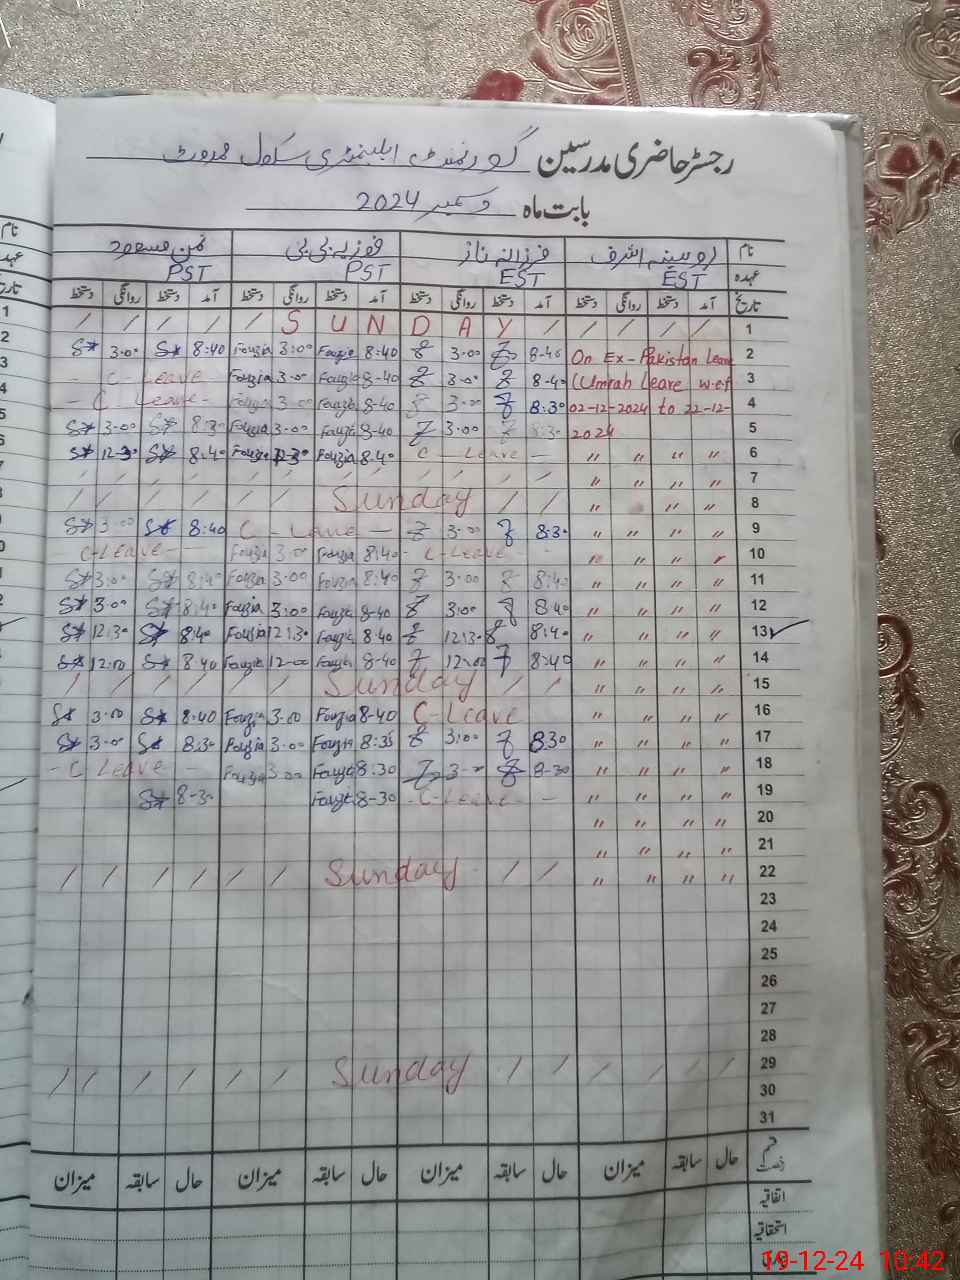 رجسٹر حاضری مدرسین گورنمنٹ ایلیمنٹری سکول
بابت ماہ دسمبر 2024
نام روبینہ اشرف فرزانہ ناز فوزیہ بی بی ثمن مسعود
عہدہ EST EST PST PST
تاریخ آمد دستخط روانگی دستخط آمد دستخط روانگی دستخط آمد دستخط روانگی دستخط آمد دستخط روانگی دستخط
/ / / / / S U N D A Y / / / / / 1
3.00 8:40 Fouzia 3:00 Fouzia 8-40 3.00 8-40 On Ex-Pakistan Leave 2
- C-Leave Fouzia 3.00 Fouzia 8-40 3.00 8-40 (Umrah Leave w.e.f 3
- C Leave - Fouzia 3.00 Fouzia 8-40 3.00 8:30 02-12-2024 to 22-12- 4
3.00 8:30 Fouzia 3.00 Fouzia 8-40 3.00 8:30 2024 5
12.30 8:40 Fouzia 12.30 Fouzia 8:40 C - Leave - " " " " 6
/ / / / / / / / / / / " " " " 7
/ / / / / / Sunday / / " " " " 8
3.00 8:40 C - Leave - 3.00 8:30 " " " " 9
C-Leave - Fouzia 3.00 Fouzia 8:40 - C-Leave " " " " 10
3:00 8:40 Fouzia 3.00 Fouzia 8:40 3.00 8:40 " " " " 11
3.00 8:40 Fouzia 3:00 Fouzia 8-40 3:00 8:40 " " " " 12
12:30 8:40 Fouzia 12:30 Fouzia 8:40 12:30 8:40 " " " " 13✓
12:00 8:40 Fouzia 12-00 Fouzia 8-40 12:00 8:40 " " " " 14
/ / / / / / Sunday / / " " " " 15
3.00 8:40 Fouzia 3.00 Fouzia 8-40 C-Leave " " " " 16
3.00 8:30 Fouzia 3.00 Fouzia 8:35 3:00 8:30 " " " " 17
- C Leave - Fouzia 3.00 Fouzia 8.30 3.00 8-30 " " " " 18
8-30 Fouzia 8-30 - C-Leave - " " " " 19
" " " " 20
" " " " 21
/ / / / / / Sunday / / " " " " 22
23
24
25
26
27
28
/ / / / / / Sunday / / / / / / 29
30
31
قسم رخصت حال سابقہ میزان حال سابقہ میزان حال سابقہ میزان حال سابقہ میزان
اتفاقیہ
استحقاقیہ
19-12-24 10:42